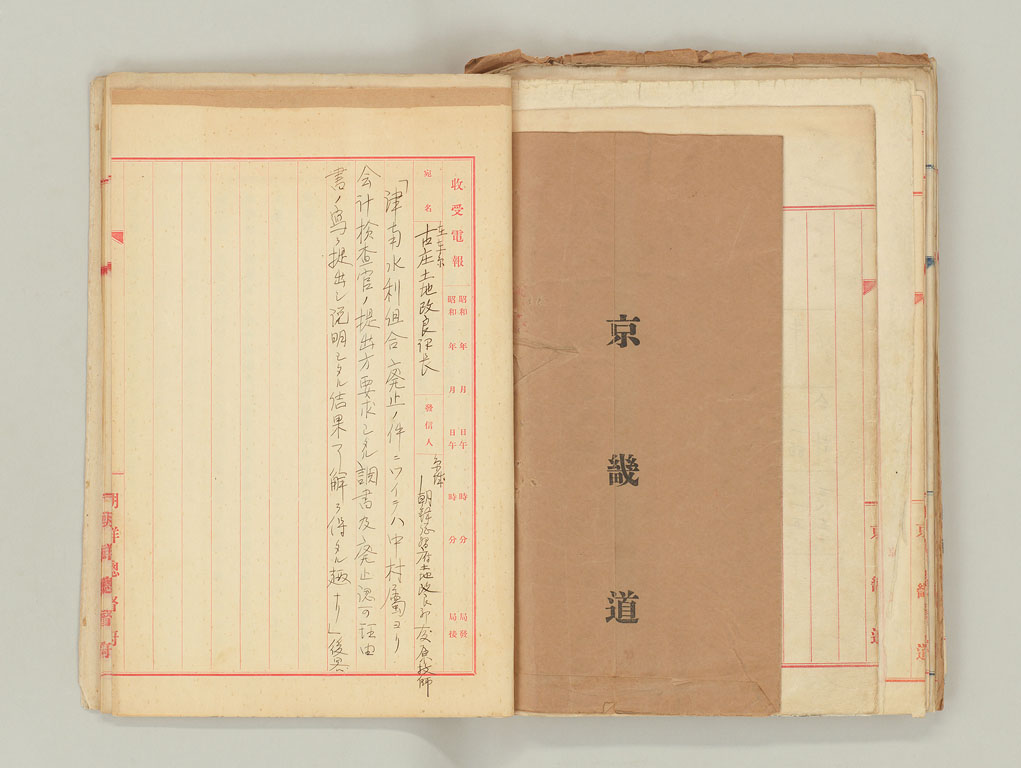 京畿道
收受電報
昭和 年 月 日 午 時 分 局發
昭和 年 月 日 午 時 分 局後
宛名
古庄土地改良課長
發信人
朝鮮総督府土地改良部 技師
「津南水利組合廃止ノ件ニツイテハ中村属ヨリ
会计検査官ノ提出方要求シタル調書及廃止認可理由
書ノ写ヲ提出シ説明シタル結果了解ヲ得タル趣ナリ」後略
朝鮮總督府
京畿道
京畿道